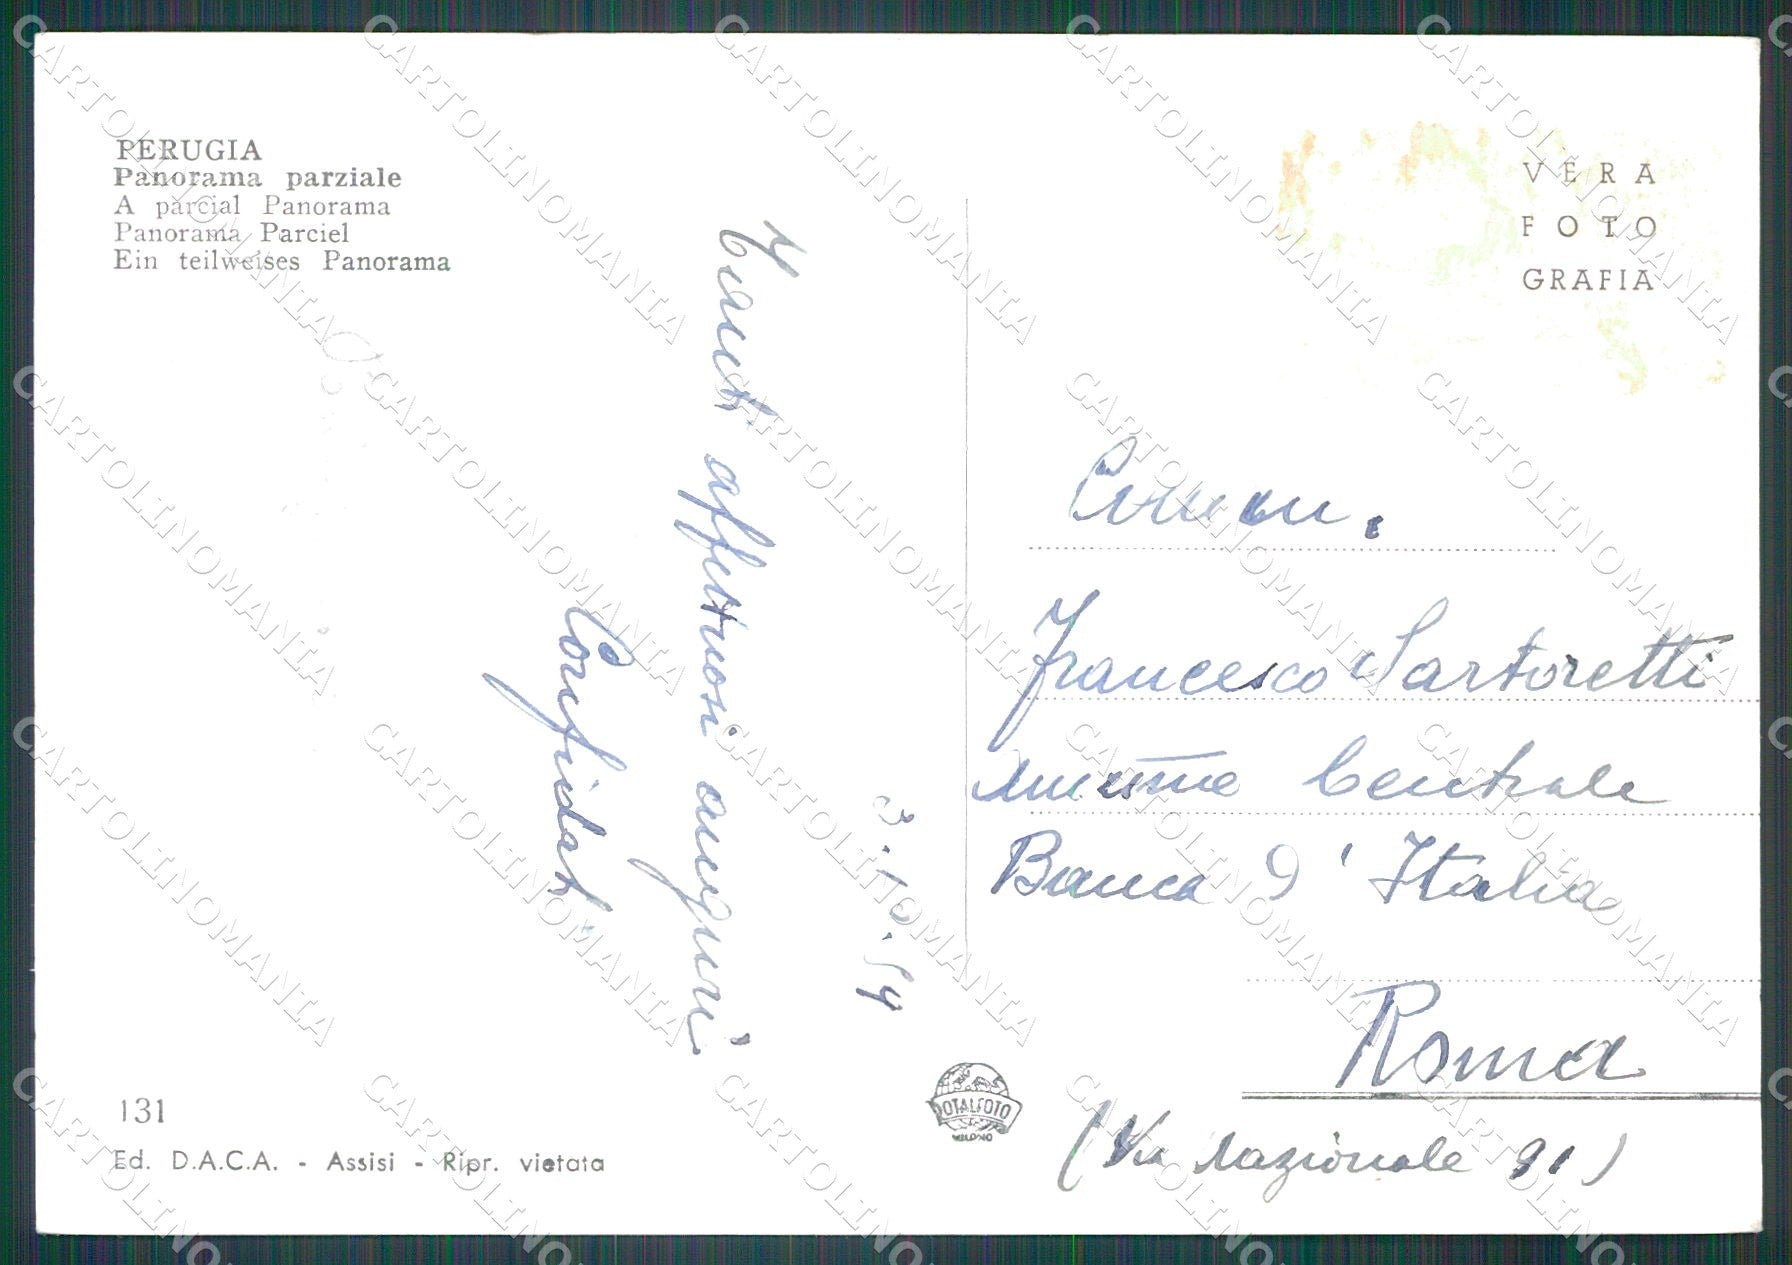 PERUGIA
Panorama parziale
A parcial Panorama
Panorama Parciel
Ein teilweises Panorama
VERA
FOTO
GRAFIA
Tanti affettuosi auguri
Confidati
3.10.54
Comm.
Francesco Sartoretti
Centrale
Banca d'Italia
Roma
(Via Nazionale 91)
131
Ed. D.A.C.A. - Assisi - Ripr. vietata
TOTALFOTO
MILANO
CARTOLINOMANIA